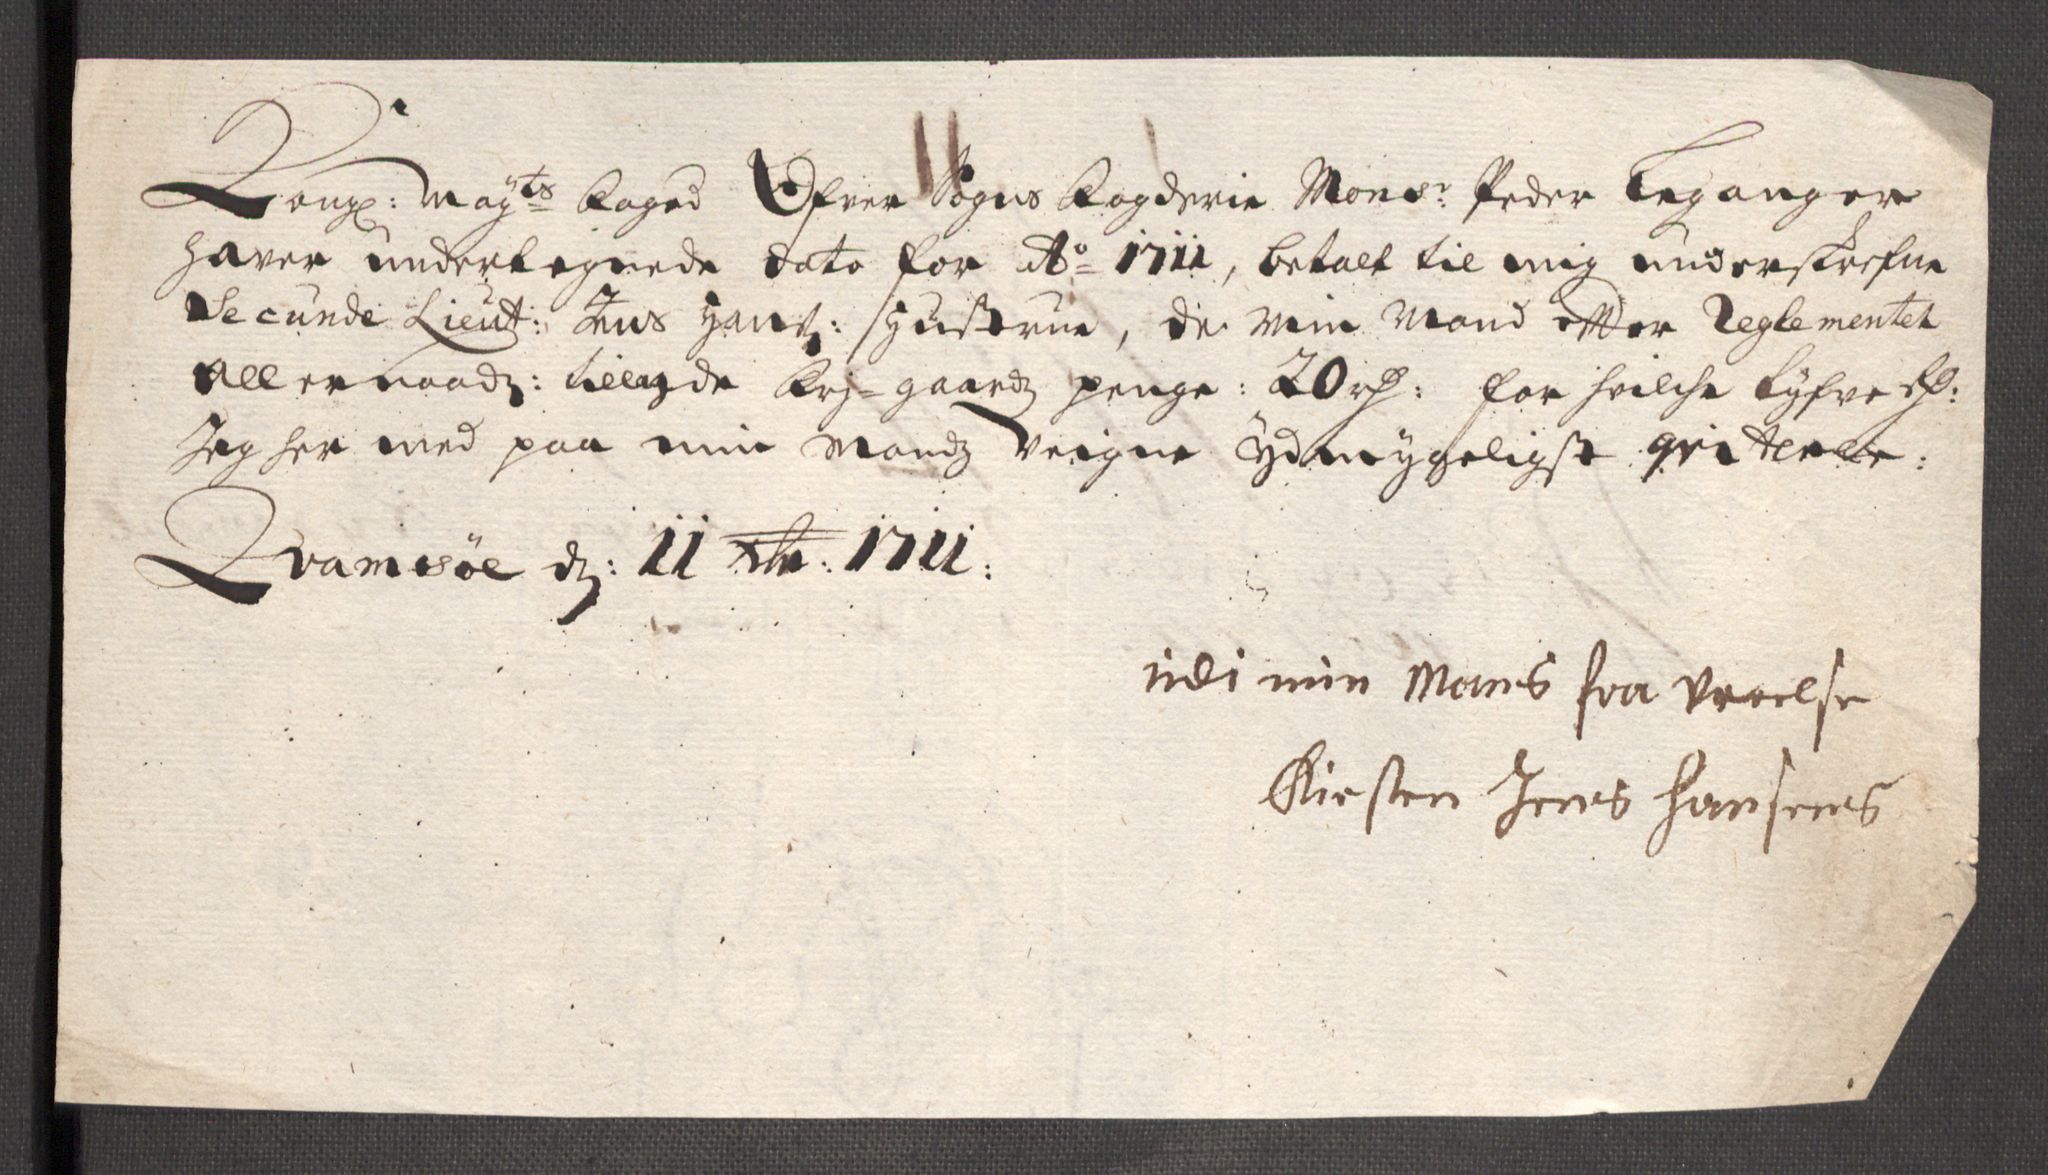 Kongl: Mayts: foged Ofver Sogns fogderie Monsr: Peder Leganger
haver underteignede dato for Ao 1711, betalt til mig underskrefne
Secunde Lieut: Jens Hans: Hustrue, de min Mand efter Reglementet
allernaadg: tillagde frj-gaardz penge: 20 rd: for hvilche tyfve rd:
Jeg her med paa min Mandz veigne ydmygeligst qvitterer:
Qvamsøe d: 11 xbr: 1711:
udi min Mans fra verelse
Kirsten Jens Hansens